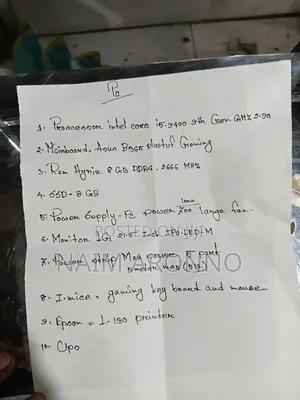 Pc
1. Proccessor intel core i5-9400 9th Gen GHz 2-90
2. Mainboard. Asus B365 plastuf Gaming
3. Ram Hynix 8 GB DDR4 - 2666 MHz
4. SSD - 8 GB
1000
5. Power Supply - Pc power 200 large fan.
6. Monitor LG 21.5 Inch IPS-LED-M
POSTED ON
7. Max power 5 port
NAIM MONNO
5 meter
8. I-mice = gaming key board and mouse
9. Epson = L-130 printer
10. Ups